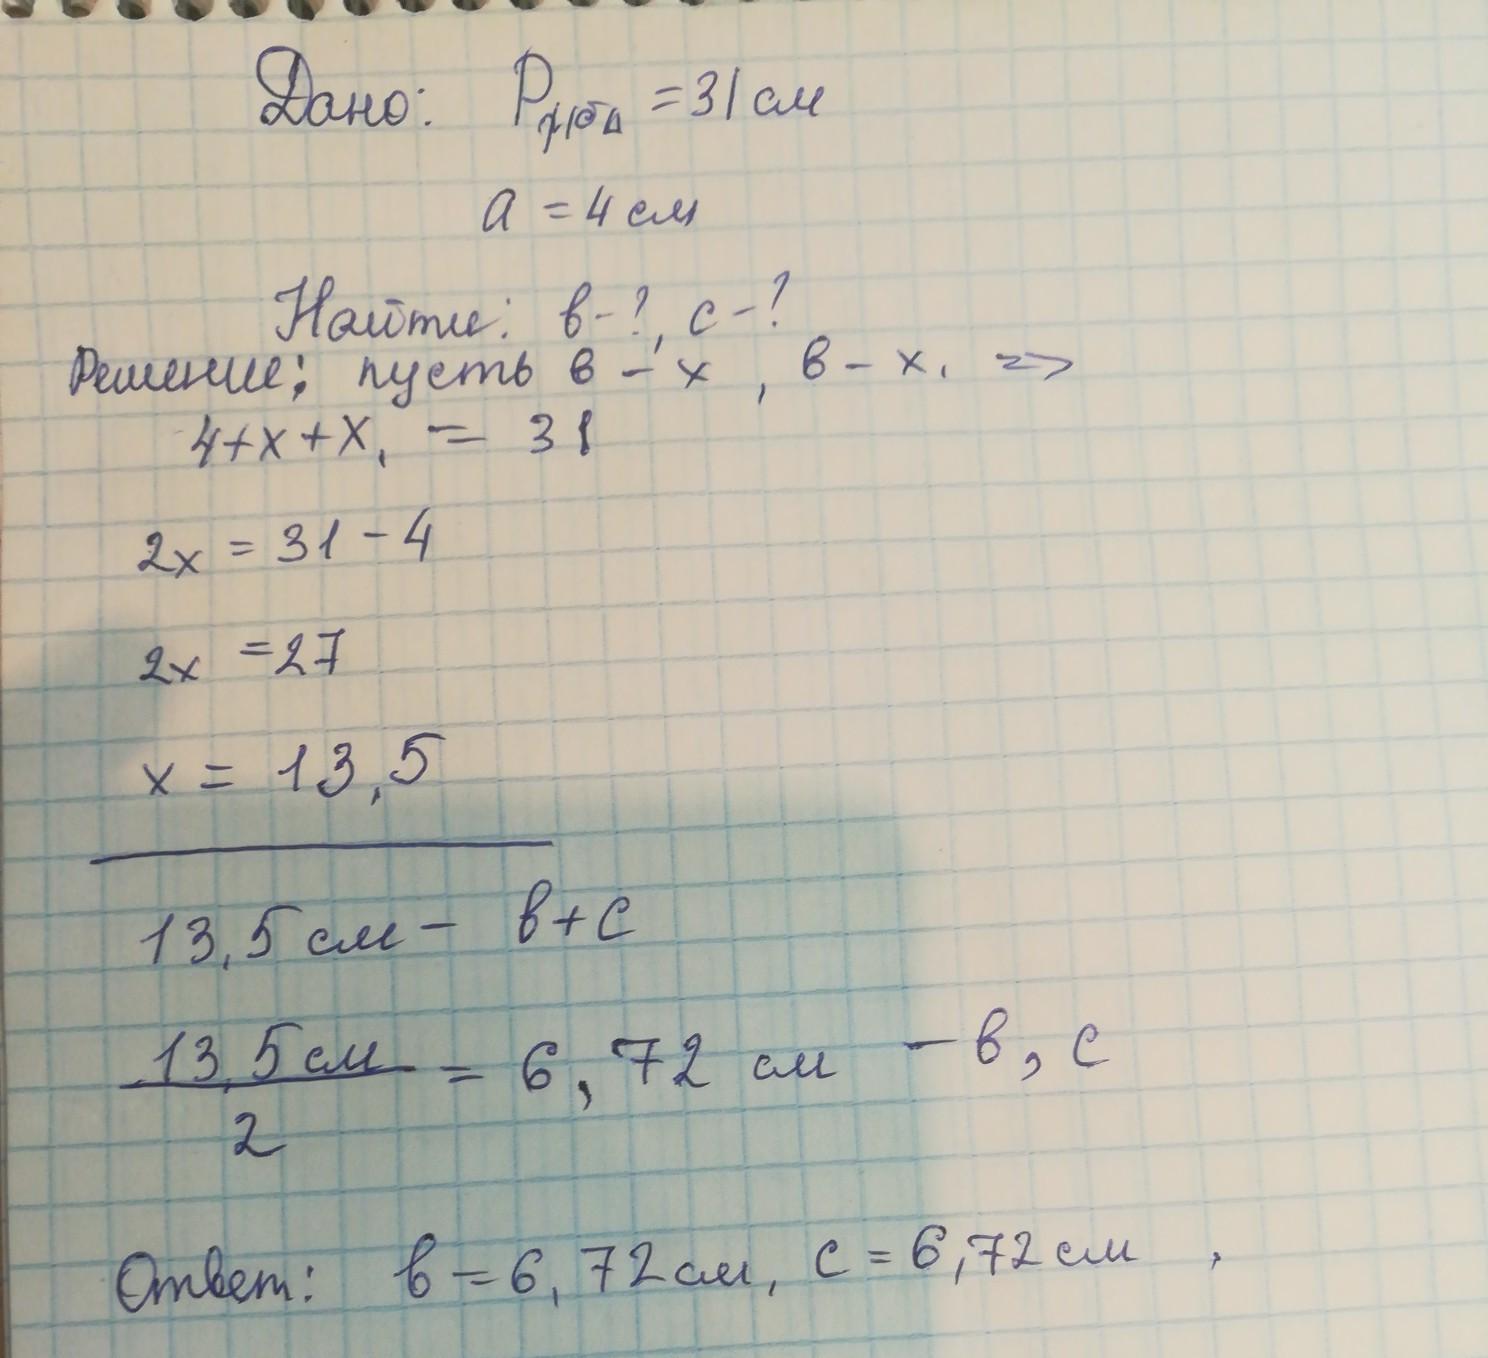 Дано: Pр/бΔ = 31 см
a = 4 см
Найти: в - ?, с - ?
Решение: пусть в - x, в - x₁ =>
4 + x + x₁ = 31
2x = 31 - 4
2x = 27
x = 13,5
13,5 см - в + с
13,5 см / 2 = 6,72 см - в, с
Ответ: в = 6,72 см, с = 6,72 см,